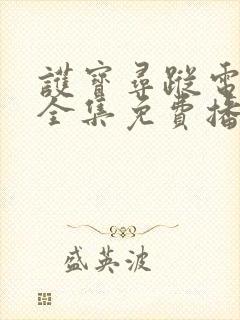 護寶尋蹤電
全集免費播
盛英波